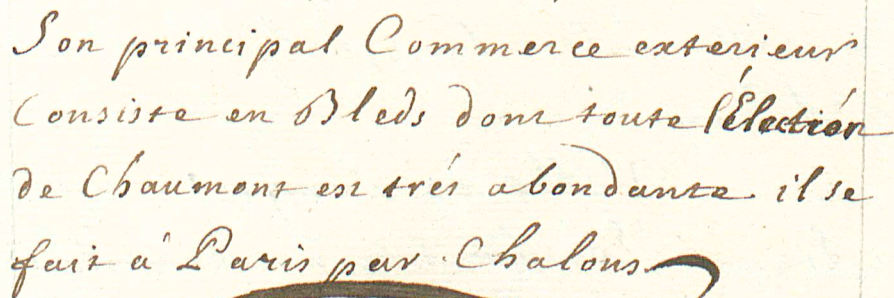 Son principal Commerce exterieur
Consiste en Bleds dont toute l'Élection
de Chaumont est trés abondante il se
fait à Paris par Chalons